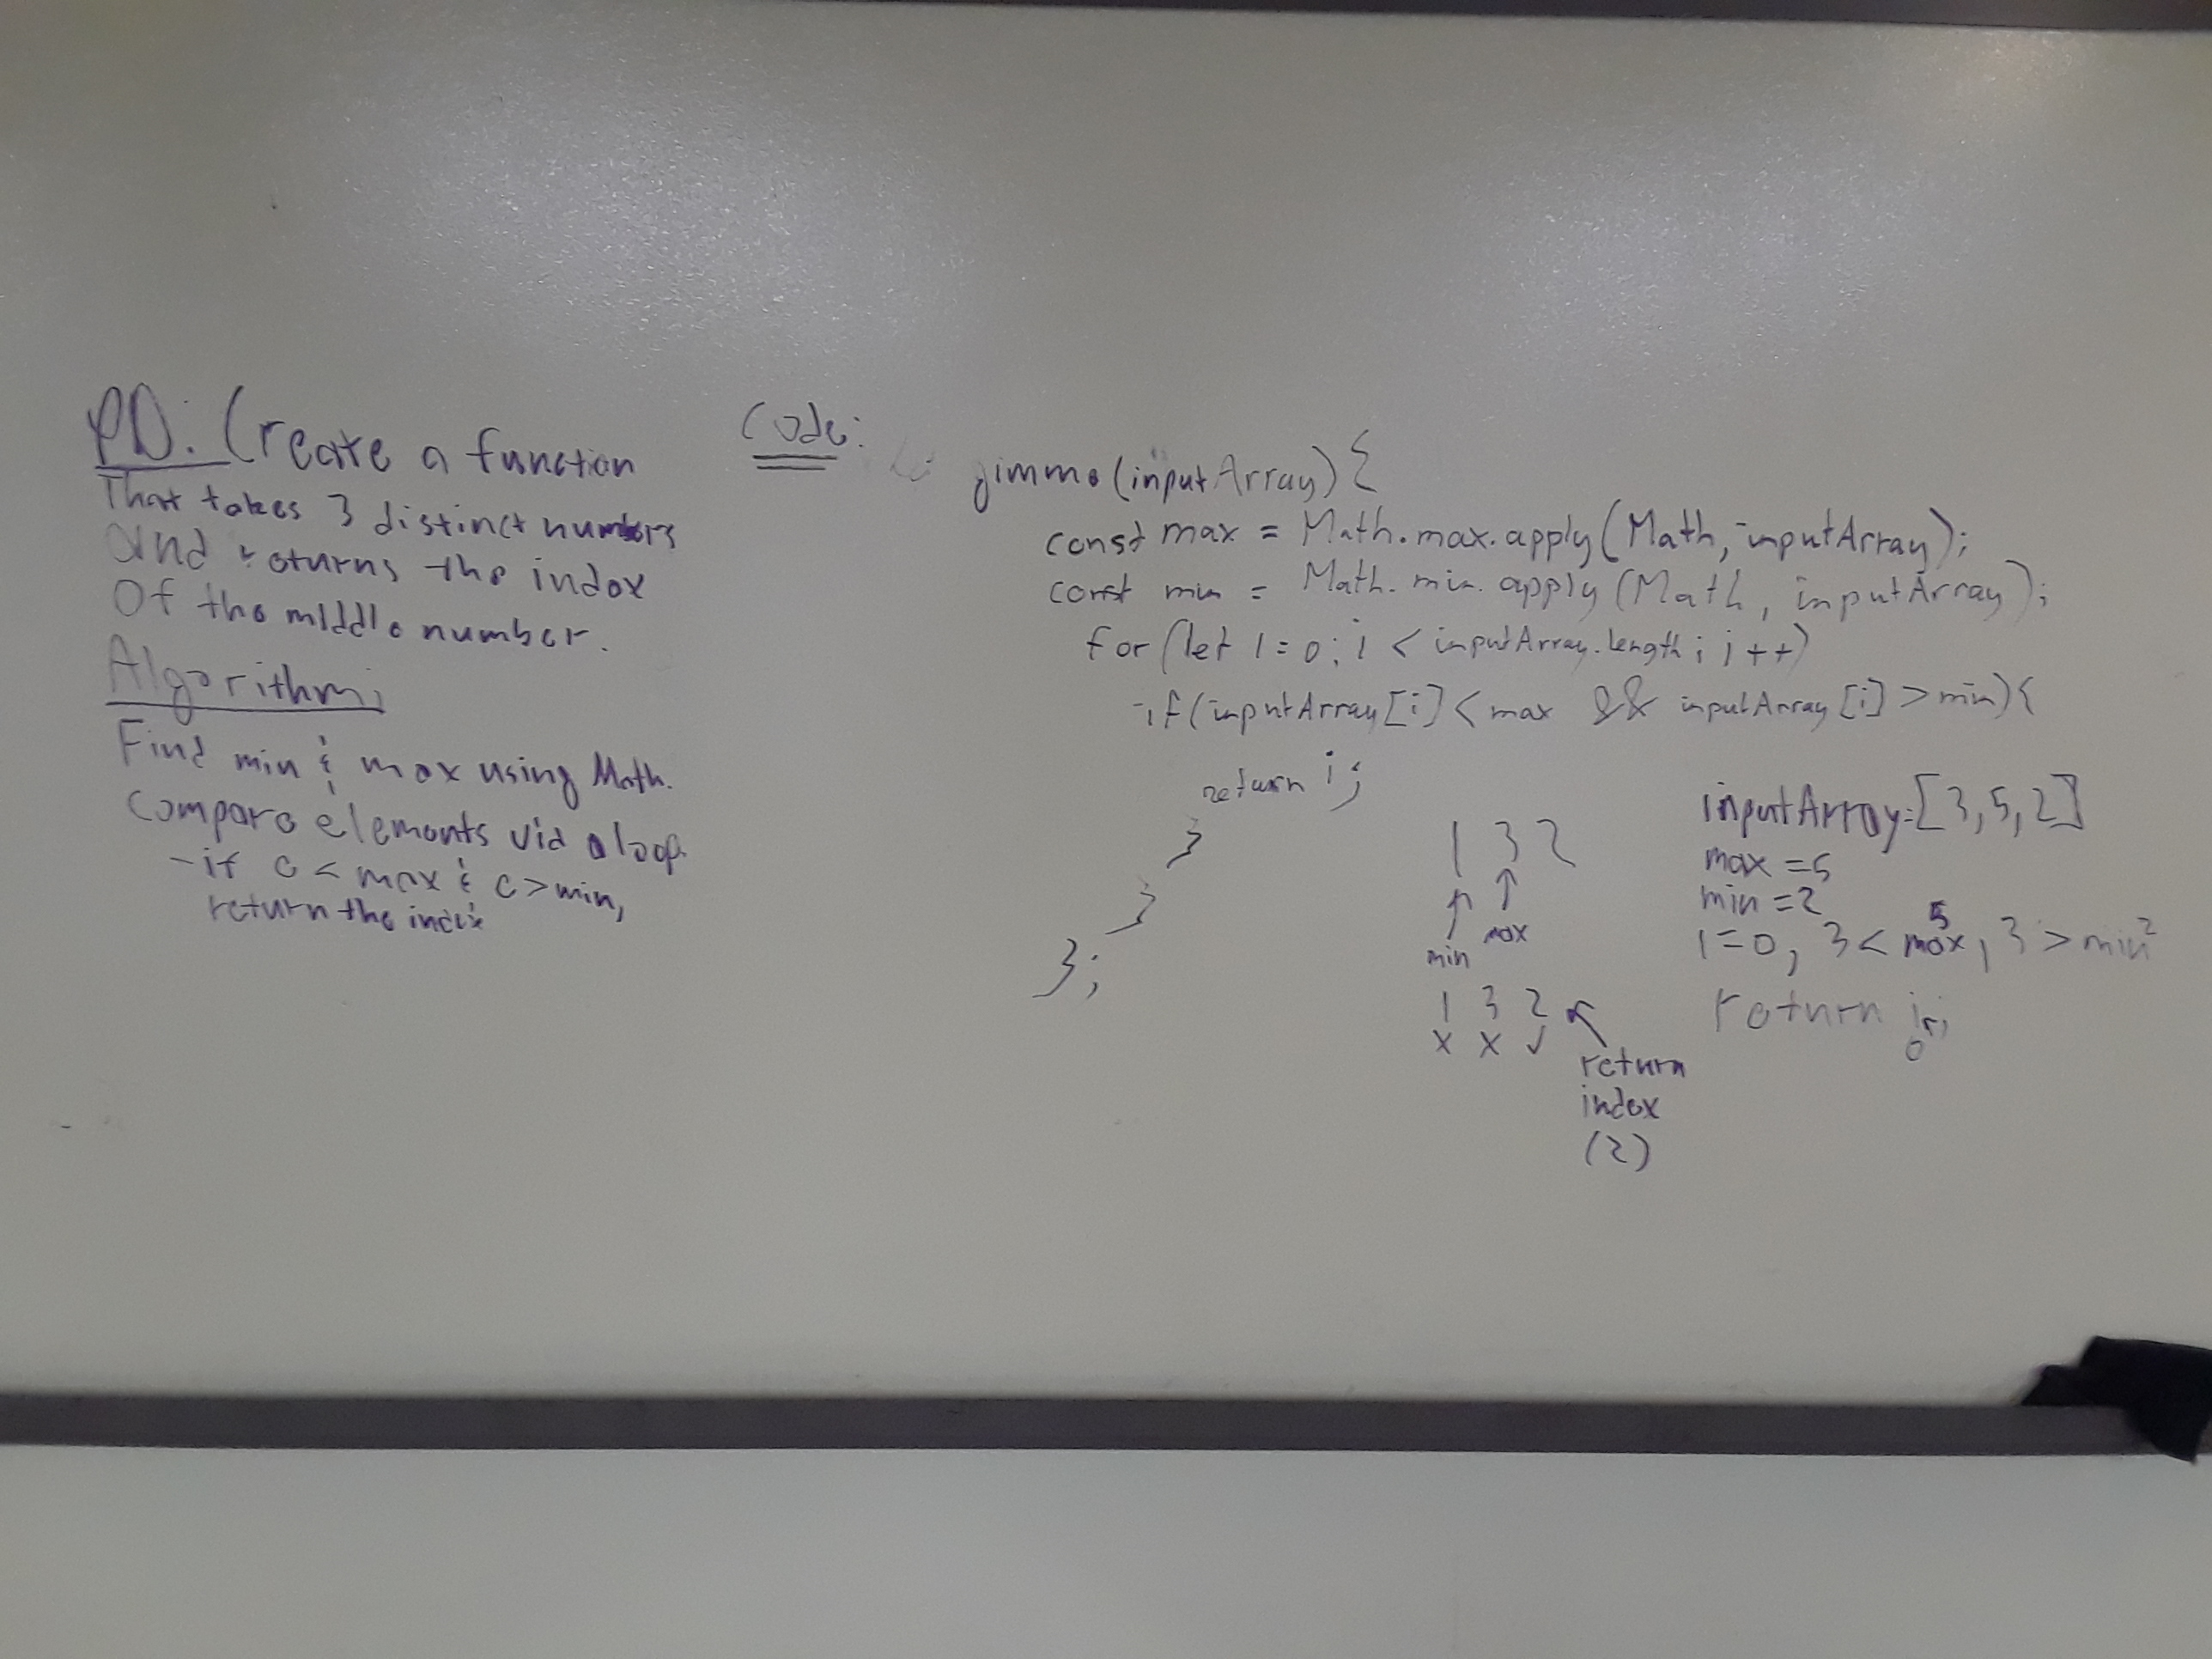 PD: Create a function
That takes 3 distinct numbers
and returns the index
Of the middle number.
Algorithm:
Find min & max using Math.
Compare elements via a loop.
-if c < max & c > min,
return the index
Code:
gimme(inputArray) {
const max = Math.max.apply(Math, inputArray);
const min = Math.min.apply(Math, inputArray);
for (let i = 0; i < inputArray.length; i++)
if(inputArray[i] < max && inputArray[i] > min){
return i;
}
}
};
1 3 2
↑ ↑
min max
1 3 2
x x ✓
return
index
(2)
inputArray=[3,5,2]
max = 5
min = 2
5 2
i=0, 3 < max, 3 > min
return i;
0